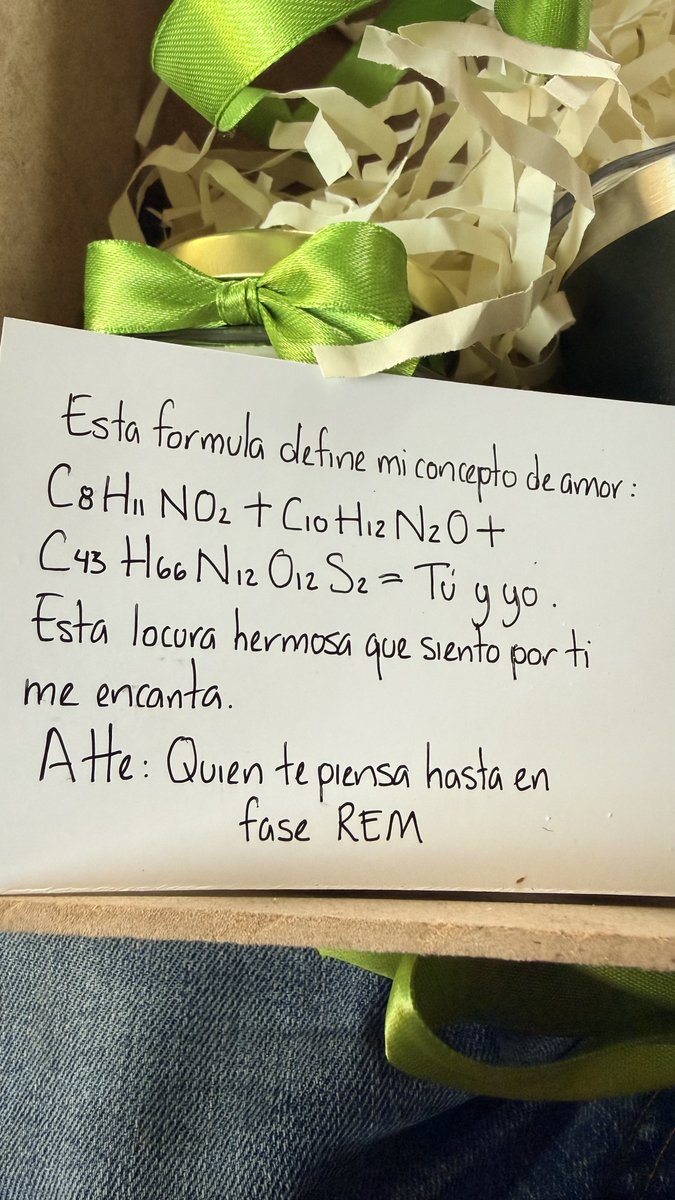 Esta formula define mi concepto de amor:
C8H11NO2 + C10H12N2O +
C43H66N12O12S2 = Tú y yo.
Esta locura hermosa que siento por ti
me encanta.
Atte: Quien te piensa hasta en
fase REM